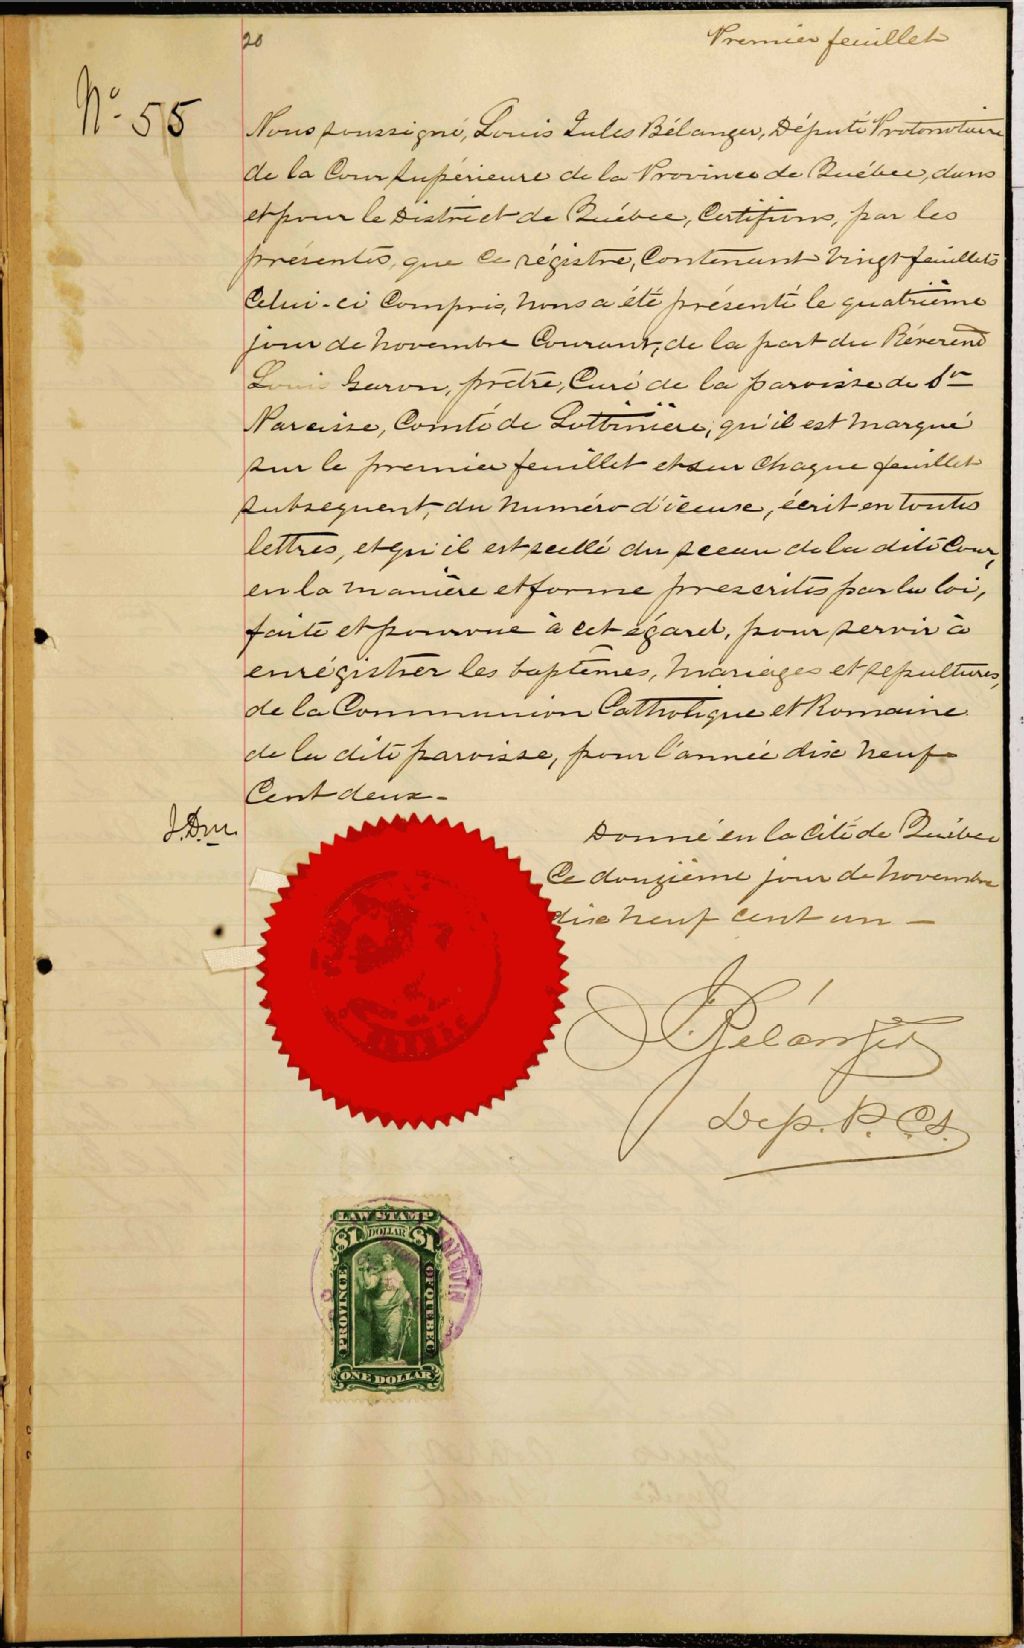 20
Premier feuillet
No. 55
Nous soussigné, Louis Jules Bélanger, Député Protonotaire
de la Cour Supérieure de la Province de Québec, dans
et pour le District de Québec, Certifions, par les
présentes, que ce régistre, Contenant vingt feuillets
Celui-ci Compris, nous a été présenté le quatrième
jour de novembre Courant, de la part du Révérend
Louis Garon, prêtre, Curé de la paroisse de St
Narcisse, Comté de Lotbinière, qu'il est marqué
sur le premier feuillet et sur chaque feuillet
subsequent, du numéro d'iceux, écrit en toutes
lettres, et qu'il est scellé du sceau de la dite Cour,
en la manière et forme prescrites par la loi,
faite et pourvue à cet égard, pour servir à
enrégistrer les baptêmes, mariages et sepultures,
de la Communion Catholique et Romaine
de la dite paroisse, pour l'année dix neuf
Cent deux -
J.D.m.
Donné en la Cité de Québec
Ce douzième jour de novembre
dix neuf cent un -
J. Bélanger
Dep. P. C. S.
LAW STAMP
$1 DOLLAR $1
PROVINCE OF QUEBEC
ONE DOLLAR